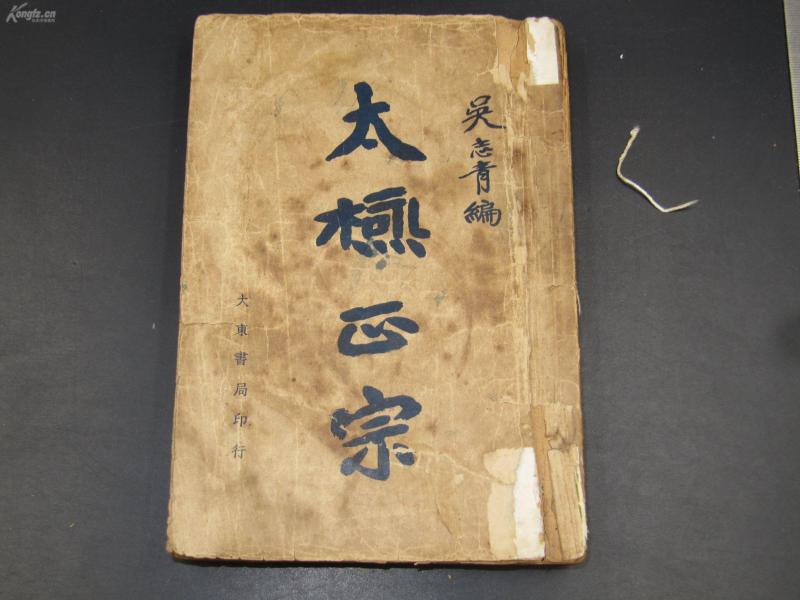 吳志青編
太極正宗
大東書局印行
Kongfz.cn